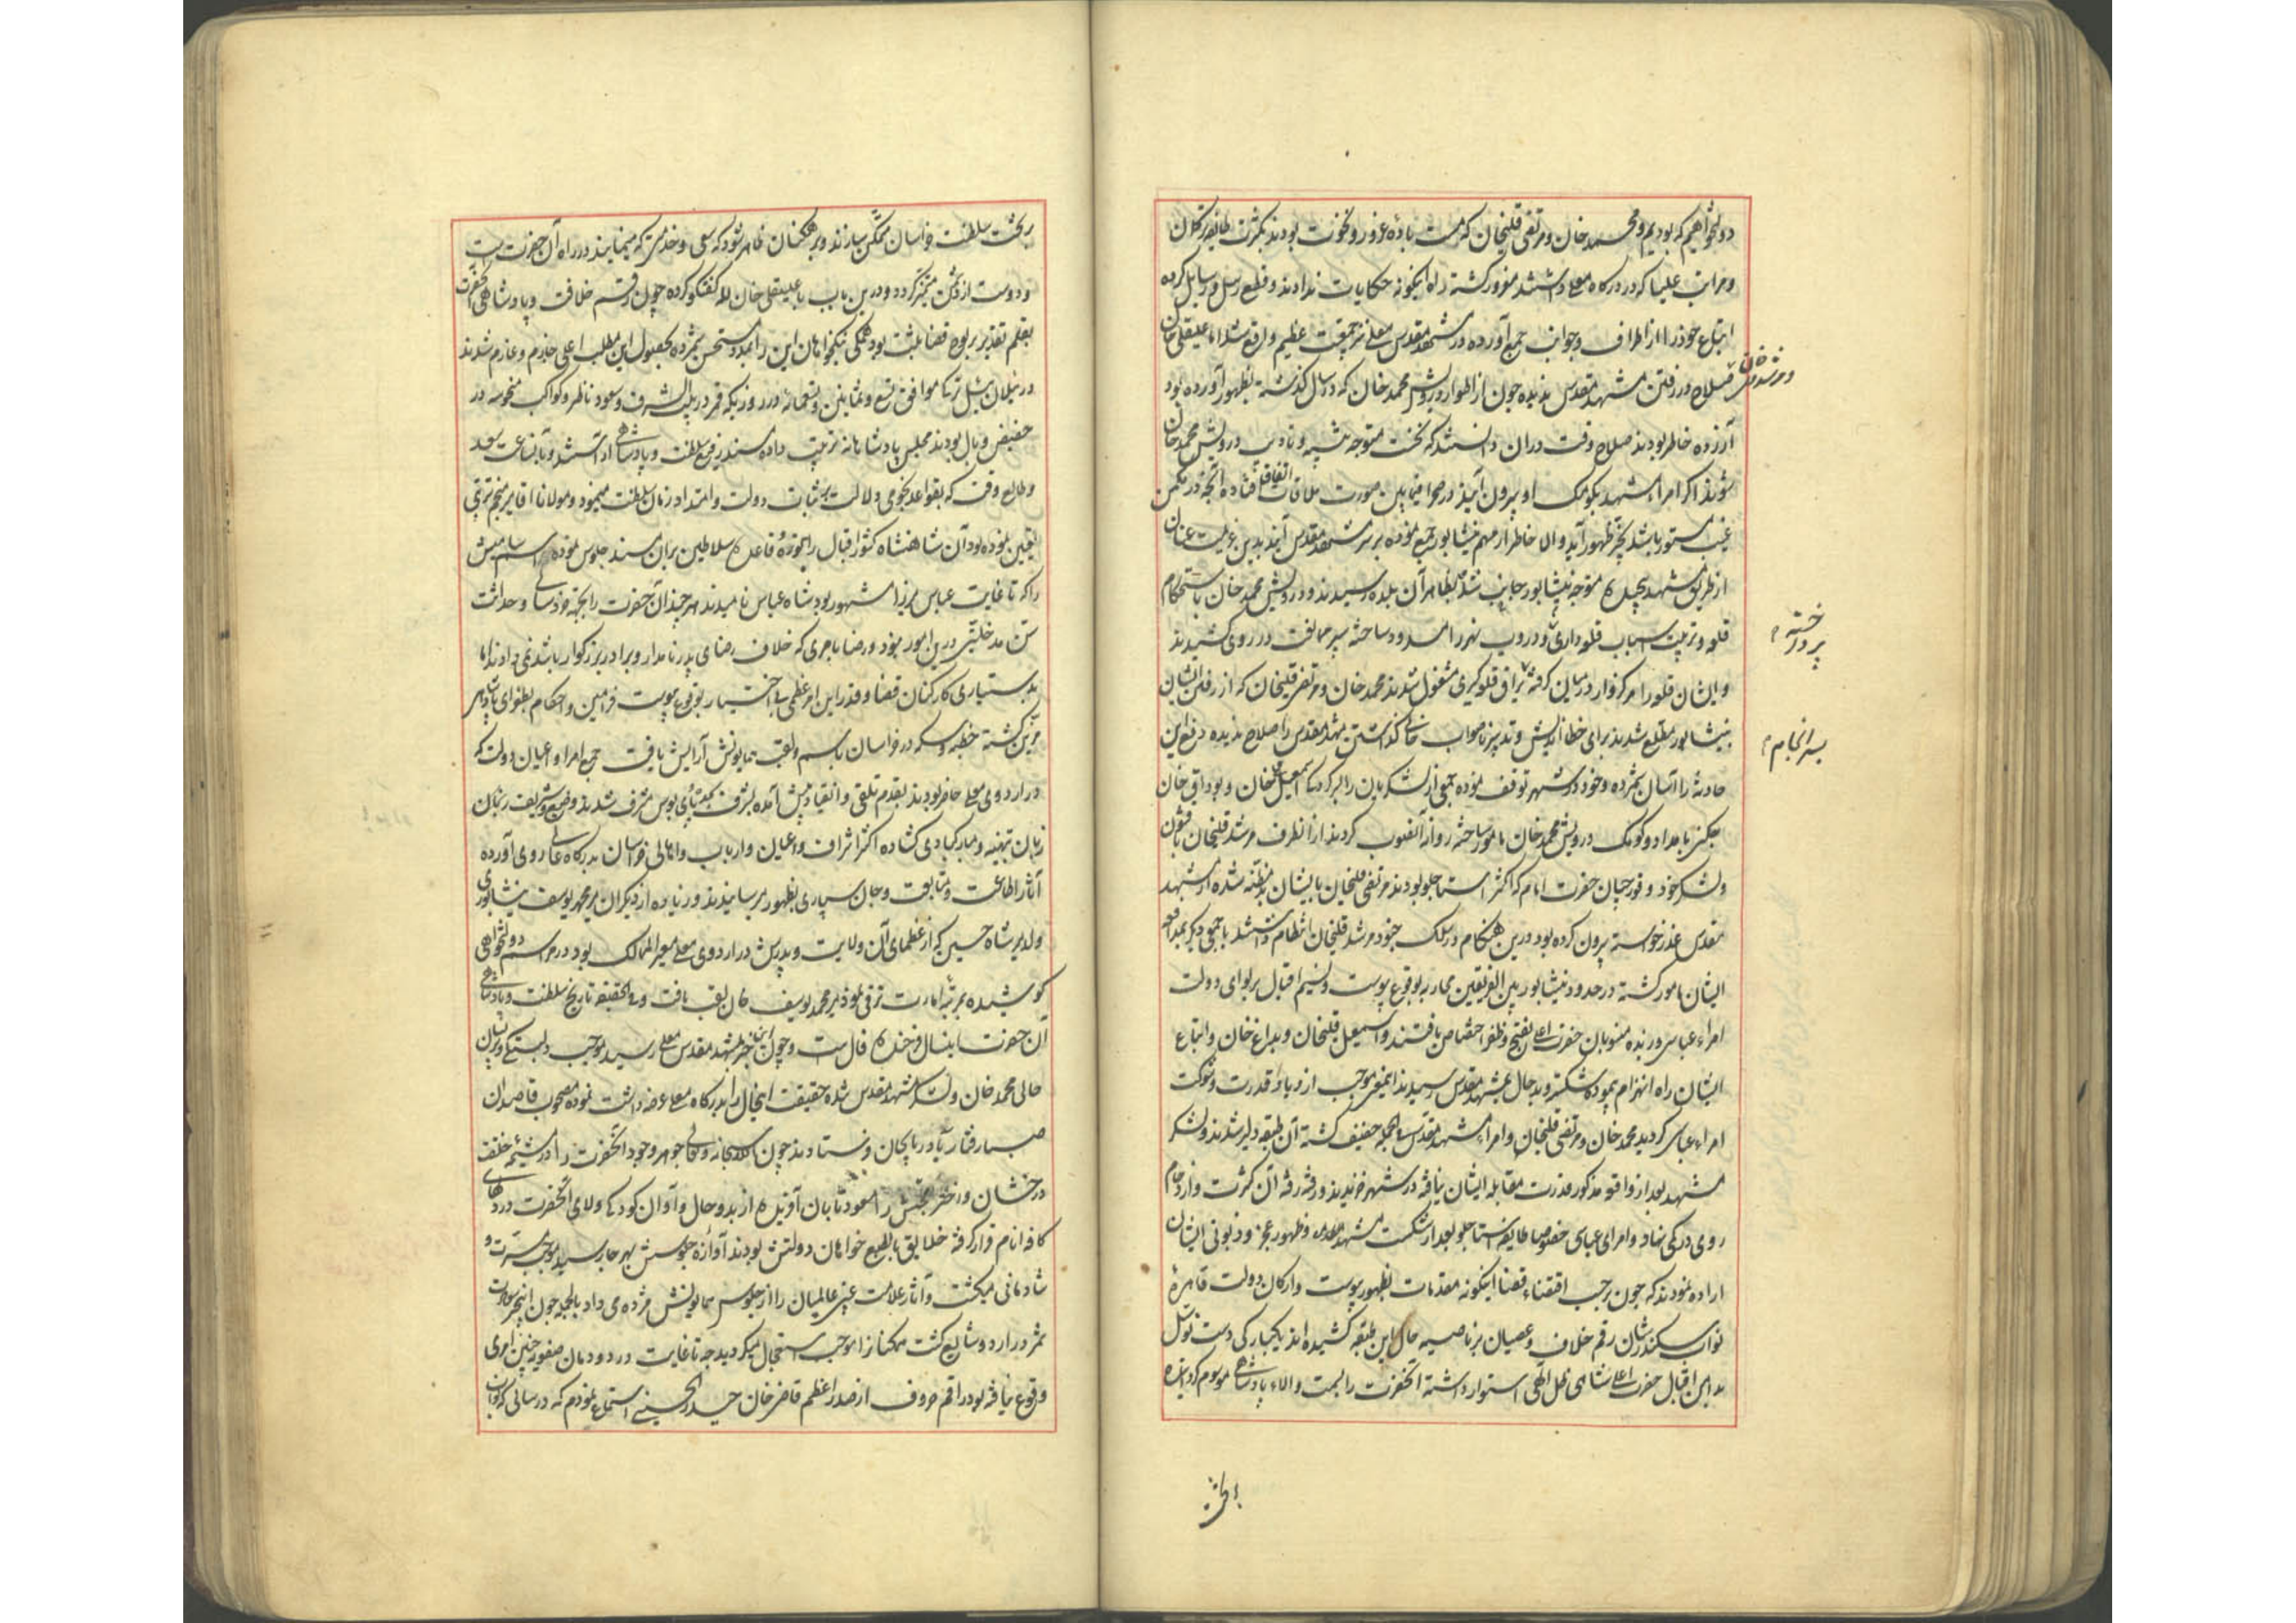 دولتخواهیم که بودیم و محمد خان و مرتضی قلیخان که مست باده غرور و نخوت بودند بکثرت طایفه ترکمان
و مراتب علیا که در درگاه معلی داشتند مغرور کشته راه اینکونه حکایات ندادند و قطع رسل و رسایل کرده
اتباع خود را از اطراف و جوانب جمع آورده در مشهد مقدس معلی نیز جمعیت عظیم واقع شد اما علیقلی خان
و مرشد قلیخان
صلاح در رفتن مشهد مقدس ندیده چون از اطوار درویش محمد خان که در سال کذشته بظهور آورده بود
آزرده خاطر بودند صلاح وقت در ان دانستند که نخست متوجه تنبیه و تادیب درویش محمد خان
شوند اکر امراء مشهد بکومک او بیرون آیند در صحرا فیمابین صورت ملاقات اتفاق افتاده آنچه در مکمن
غیب مستور باشد بحیز ظهور آید والا خاطر از مهم نیشابور جمع نموده بر سر مشهد مقدس آیند بدین عزیمت عنان
از طریق مشهد پیچیده متوجه نیشابور جانب شده بظاهر آن بلده رسیدند و درویش محمد خان باستحکام
قلعه و ترتیب اسباب قلعه داری و دروب شهر را مسدود ساخته سپر مخالفت در روی کشیدند
پرداخته
و ایشان قلعه را مرکزوار در میان کرفته یراق قلعه کیری مشغول شدند محمد خان و مرتضی قلیخان که از رفتن ایشان
سرانجام
بنیشابور مطلع شدند برای خطا اندیش و تدبیر ناصواب خالی کذاشتن مشهد مقدس را صلاح ندیده دفع این
حادثه را آسان شمرده و خود در شهر توقف نموده جمعی از لشکریان را بسرکردکی اسمعیل قلیخان و بوداق خان
چکنی بامداد و کومک درویش محمد خان مامور ساخته روانه آنصوب کردند از آنطرف مرشد قلیخان با قشون
و لشکر خود و قورچیان حضرت امام که اکثر استاجلو بودند مرتضی قلیخان بایشان بدمظنه شده از مشهد
مقدس عذر خواسته بیرون کرده بود درین هنکام در سلک جنود مرشد قلیخان انتظام داشتند با جمعی دیکر بمدافعه
ایشان مامور کشته در حدود نیشابور بین الفریقین محاربه بوقوع پیوست و نسیم اقبال بر لوای دولت
امراء عباسی وزیده منسوبان حضرت اعلی بفتح و ظفر اختصاص یافتند و اسمعیل قلیخان و بداغ خان و اتباع
ایشان راه انهزام پیموده شکسته و بدحال بمشهد مقدس رسیدند اینمعنی موجب ازدیاد قدرت و شوکت
امراء عباسی کردید محمد خان و مرتضی قلیخان و امراء مشهد مقدس فی الجمله خفیف کشته آن طبقه دلیر شدند و لشکر
مشهد بعد از واقعه مذکور قدرت مقابله ایشان نیافته در شهر خزیدند و رفته رفته آن کثرت و ازدحام
روی در کمی نهاد و امرای عباسی خصوصا طایفه استاجلو بعد از شکست مشهد مقدس و ظهور عجز و زبونی ایشان
اراده نمودند که چون بر حسب اقتضاء قضا اینکونه مقدمات بظهور پیوست و ارکان دولت قاهره
نواب سکندرشان رقم خلاف و عصیان بر ناصیه حال این طبقه کشیده اند یکبارکی دست توسل
بدامن اقبال حضرت اعلی شاهی ظل الهی استوار داشته آنحضرت را بسمت والاء پادشاهی موسوم کردانیده
برتخت
برتخت سلطنت خراسان متمکن سازند و بر همکنان ظاهر شود که سعی و خدمتی که مینمایند در راه آن حضرت است
و دوست از دشمن متمیز کردد و درین باب با علیقلی خان لله کفتکو کرده چون رقم خلافت و پادشاهی آنحضرت
بقلم تقدیر بر لوح قضا مثبت بود همکی نیکخواهان این را بمد و مستحسن شمرده بحصول این مطلب اعلی جازم و عازم شدند
در ییلان ییل ترکی موافق تسع و ثمانین و تسعمائه در روزیکه قمر در بیت الشرف و سعود ناظر و کواکب منحوسه در
حضیض وبال بودند مجلس پادشاهانه ترتیب داده مسند رفیع سلطنت و پادشاهی آراستند و بآن ساعت سعد
و طالع وقت که بقواعد نجومی دلالت بر ثبات دولت و امتداد زمان سلطنت مینمود و مولانا آقا میر منجم ترتی
تعیین نموده بود آن شاهنشاه کشور اقبال را بتوره و قاعده سلاطین بران مسند جلوس نموده اسم سامیش
را که تا غایت عباس میرزا مشهور بود شاه عباس نامیدند هر چند آن حضرت را بجهة خردسالی و حداثت
سن مدخلیتی درین امور نبود و رضا بامری که خلاف رضای پدر نامدار و برادر بزرکوار باشد نمی دادند اما
بدستیاری کارکنان قضا و قدر این امر عظمی بی اختیار بوقوع پیوست فرامین و احکام بطغرای شاهی
مزین کشته خطبه و سکه در خراسان باسم و لقب همایونش آرایش یافت جمیع امرا و اعیان دولت که
در اردوی معلی حاضر بودند بقدم تلقی و انقیاد پیش آمده بشرف پای بوس مشرف شدند وضیع و شریف
زبان بتهنیه و مبارکبادی کشاده اکثر اشراف و اعیان و ارباب و اهالی خراسان بدرکاه عالی روی آورده
آثار اطاعت و متابعت و جان سپاری بظهور میرسانیدند و زیاده از دیکران میر محمد یوسف نیشابوری
ولد میر شاه حسین که از عظمای آن ولایت و پدرش در اردوی معلی معیر الممالک بود در مراسم دولتخواهی
کوشیده بمرتبه امارت ترقی نموده میر محمد یوسف خان لقب یافت و فی الحقیقه تاریخ سلطنت و پادشاهی
آن حضرت اینسال فرخنده فال است و چون این خبر بمشهد مقدس معلی رسید موجب دلشکستکی و پریشان
حالی محمد خان و لشکر مشهد مقدس شده حقیقت اینحال را بدرکاه معلی عرضه داشت نموده مصحوب قاصدان
صبا رفتار بآذربایجان فرستادند چون سبحانه و تعالی جوهر وجود آنحضرت را در مشیمه خلقت
درخشان و اختر بختش را مسعود و تابان آفریده از بدو حال و آوان کودکی ولای آنحضرت در دلهای
کافه انام قرار کرفته خلایق بالطبع خواهان دولتش بودند آوازه جلوسش بهر جا رسید موجب مسرت و
شادمانی میکشت و آثار علامت غیبی عالمیان را از جلوس همایونش مژده می داد بالجمله چون اینخبر
در اردو شایع کشت همکنان را موجب استعجال میکردید چه تا غایت در دودمان صفویه چنین امری
وقوع نیافته بود راقم حروف از صدر اعظم قاضی خان حسینی استماع نمودم که در سالی که نواب